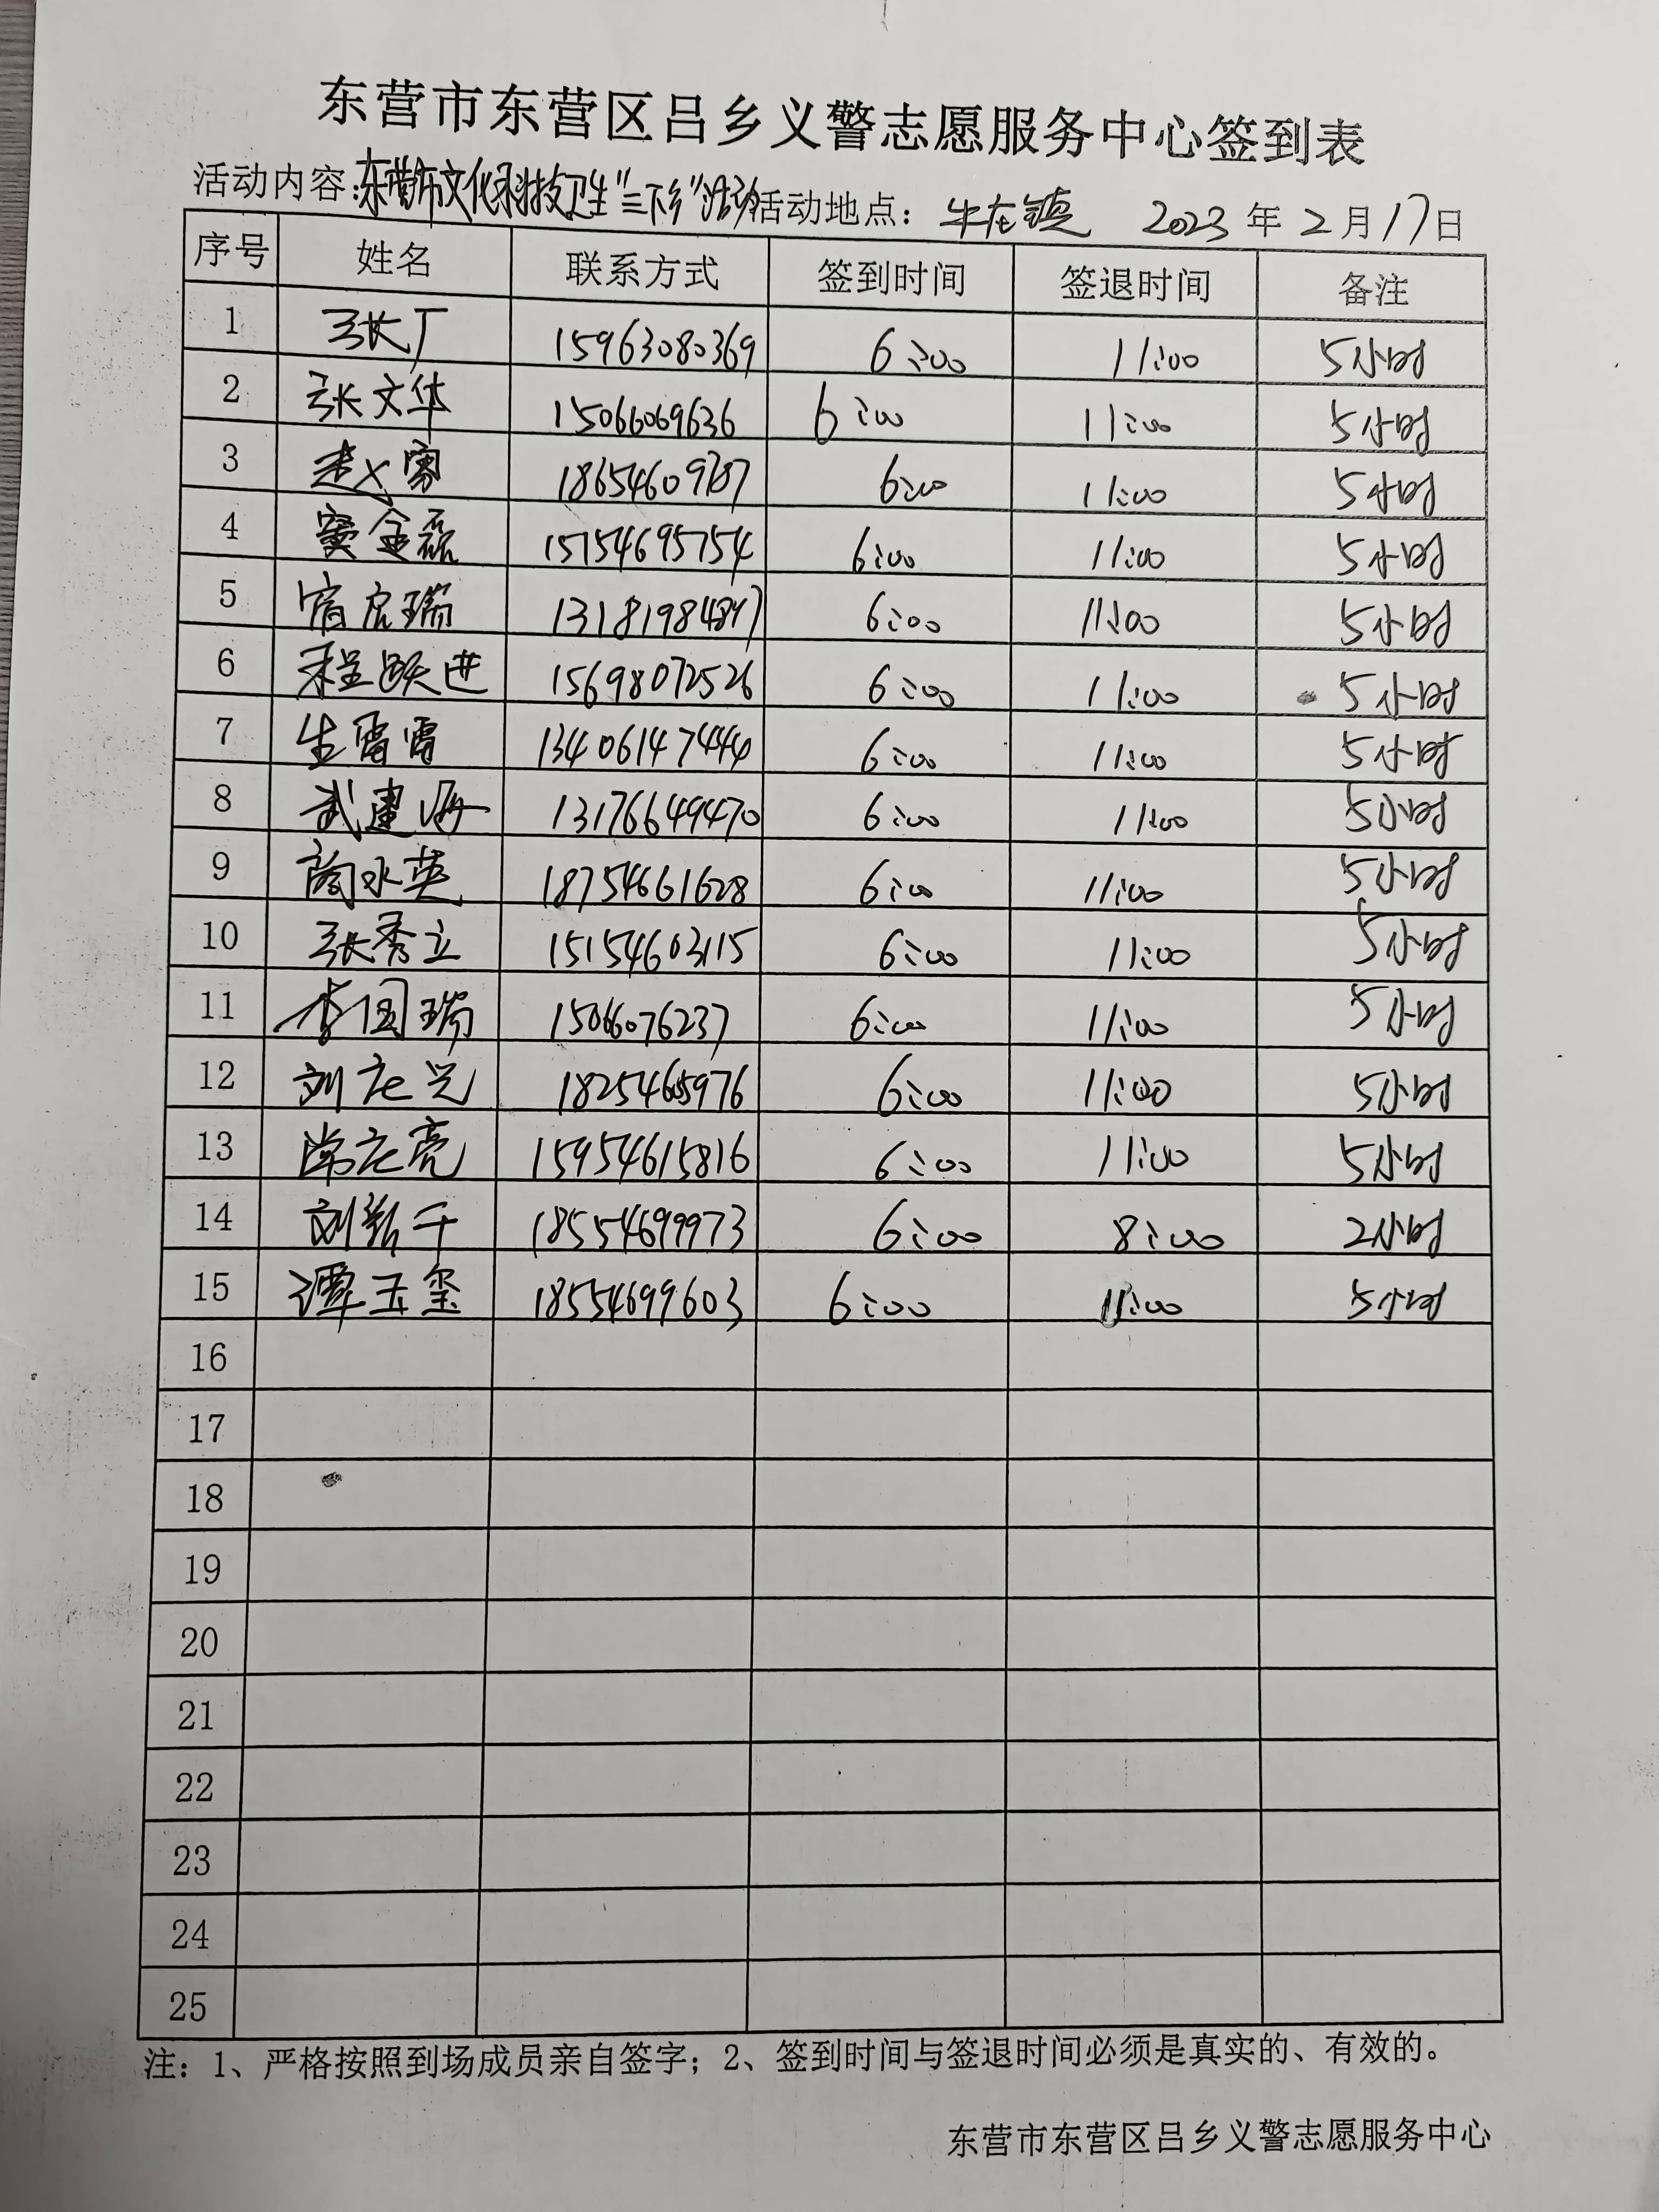 东营市东营区吕乡义警志愿服务中心签到表
活动内容:东营市文化科技卫生"三下乡"活动 活动地点: 牛庄镇 2023 年 2 月 17 日
序号 姓名 联系方式 签到时间 签退时间 备注
1 张广 15963080369 6:00 11:00 5小时
2 张文华 15066069636 6:00 11:00 5小时
3 18654609787 6:00 11:00 5小时
4 窦金磊 15754695754 6:00 11:00 5小时
5 13181984847 6:00 11:00 5小时
6 程跃进 15698072526 6:00 11:00 5小时
7 生雷雷 13406147444 6:00 11:00 5小时
8 武建 13176649470 6:00 11:00 5小时
9 水英 18754661628 6:00 11:00 5小时
10 张秀立 15154603115 6:00 11:00 5小时
11 李国瑞 15066076237 6:00 11:00 5小时
12 刘 18254605976 6:00 11:00 5小时
13 亮 15954615816 6:00 11:00 5小时
14 刘 千 18554699973 6:00 8:00 2小时
15 谭玉玺 18554699603 6:00 11:00 5小时
16
17
18
19
20
21
22
23
24
25
注: 1、严格按照到场成员亲自签字; 2、签到时间与签退时间必须是真实的、有效的。
东营市东营区吕乡义警志愿服务中心